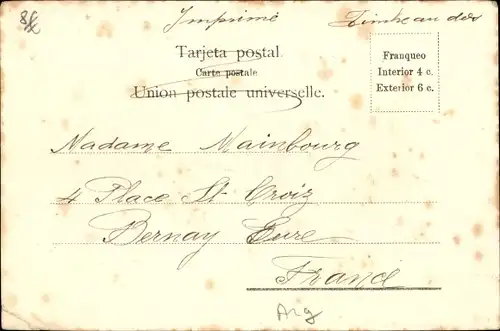 Imprimé Timbre au dos
Tarjeta postal.
Carte postale.
Union postale universelle.
Franqueo
Interior 4 c.
Exterior 6 c.
Madame Mainbourg
4 Place St Croix
Bernay Eure
France
Arg